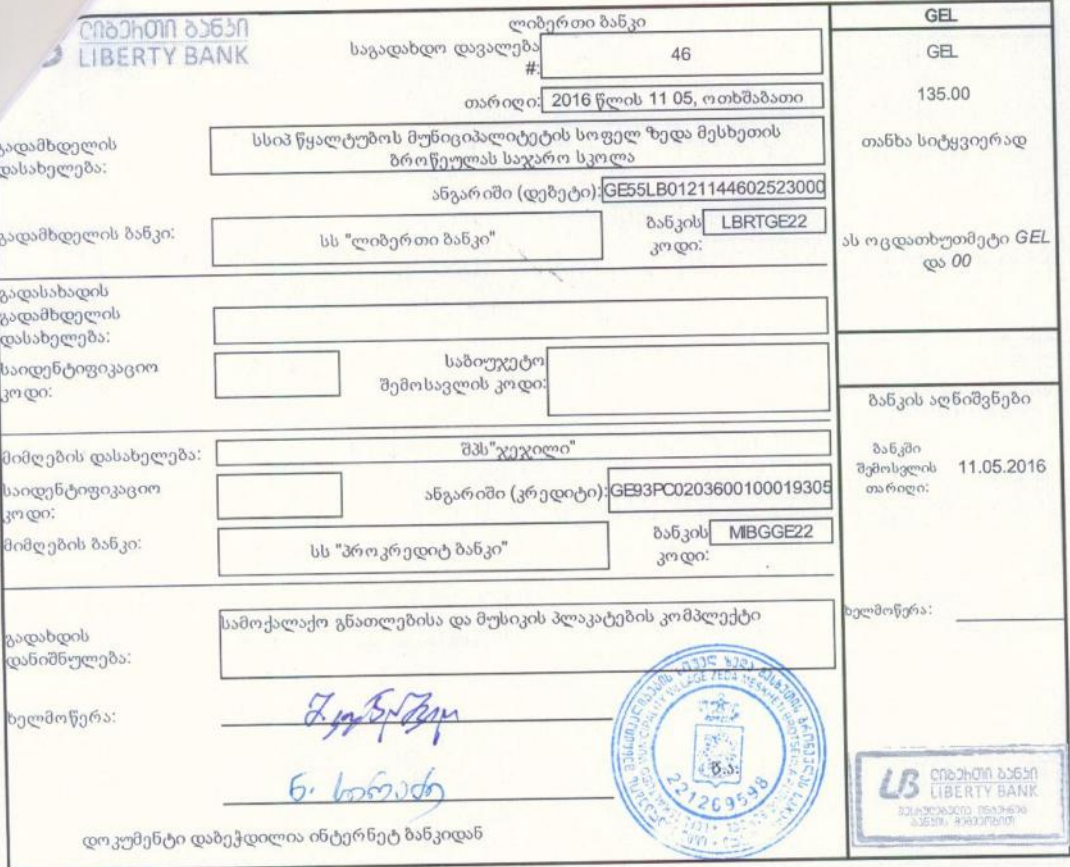 ლიბერთი ბანკი
LIBERTY BANK
ლიბერთი ბანკი
საგადახდო დავალება
#:
46
თარიღი:
2016 წლის 11 05, ოთხშაბათი
გადამხდელის
დასახელება:
სსიპ წყალტუბოს მუნიციპალიტეტის სოფელ ზედა მესხეთის
ბროწეულას საჯარო სკოლა
ანგარიში (დებეტი):
GE55LB0121144602523000
გადამხდელის ბანკი:
სს "ლიბერთი ბანკი"
ბანკის
კოდი:
LBRTGE22
გადასახადის
გადამხდელის
დასახელება:
საიდენტიფიკაციო
კოდი:
საბიუჯეტო
შემოსავლის კოდი:
მიმღების დასახელება:
შპს"ჯეჯილი"
საიდენტიფიკაციო
კოდი:
ანგარიში (კრედიტი):
GE93PC0203600100019305
მიმღების ბანკი:
სს "პროკრედიტ ბანკი"
ბანკის
კოდი:
MIBGGE22
გადახდის
დანიშნულება:
სამოქალაქო გნათლებისა და მუსიკის პლაკატების კომპლექტი
ხელმოწერა:
ბ.ა:
221269598
დოკუმენტი დაბეჭდილია ინტერნეტ ბანკიდან
GEL
GEL
135.00
თანხა სიტყვიერად
ას ოცდათხუთმეტი GEL
და 00
ბანკის აღნიშვნები
ბანკში
შემოსვლის
თარიღი:
11.05.2016
ხელმოწერა:
ლიბერთი ბანკი
LIBERTY BANK